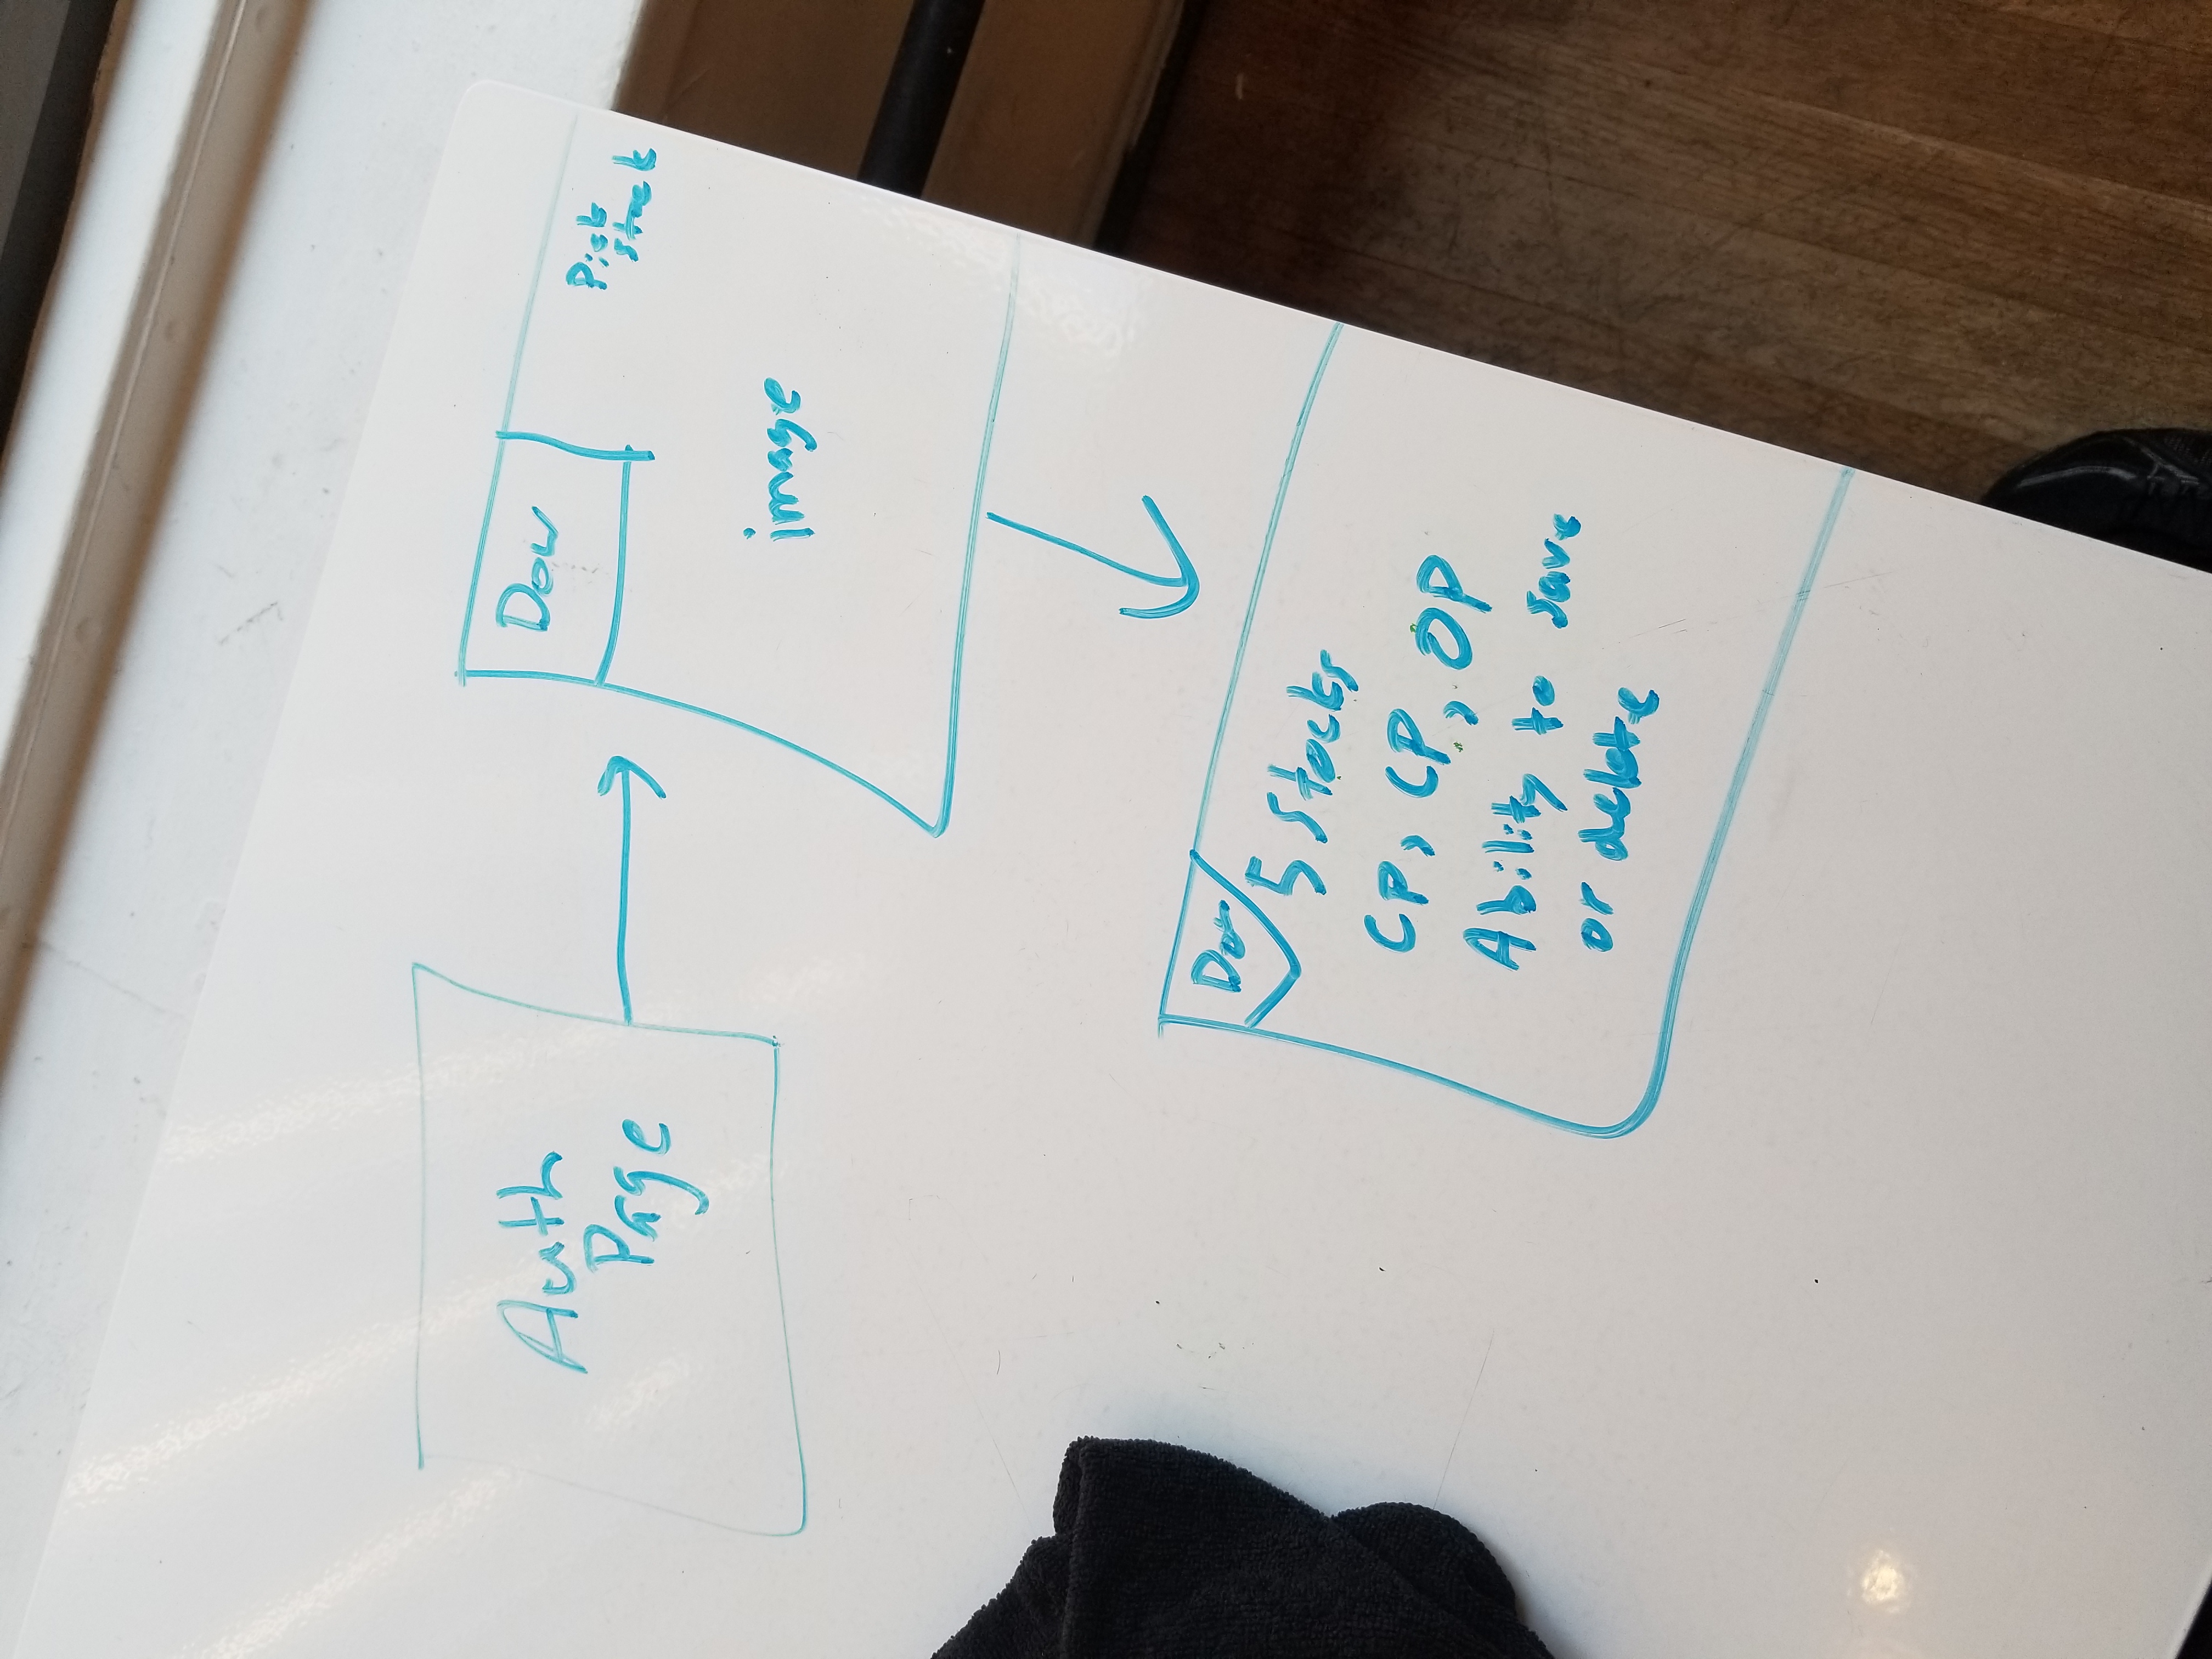 Auth
Page
Dow
Pick
Stock
image
5 Stocks
CP, CP, OP
Ability to save
or delete